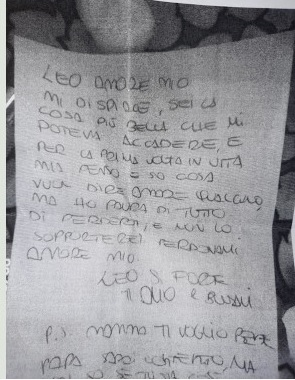 LEO AMORE MIO
MI DISPIACE, SEI LA
COSA PIÙ BELLA CHE MI
POTEVA ACCADERE, E
PER LA PRIMA VOLTA IN VITA
MIA PENSO E SO COSA
VUOL DIRE AMORE
MA HO PAURA DI TUTTO
DI PERDERTI, E NON LO
SOPPORTEREI PERDONAMI
AMORE MIO.
LEO SII FORTE
TI AMO
P.S. NONNA TI VOGLIO BENE
PAPÀ SARAI CONTENTO, MA